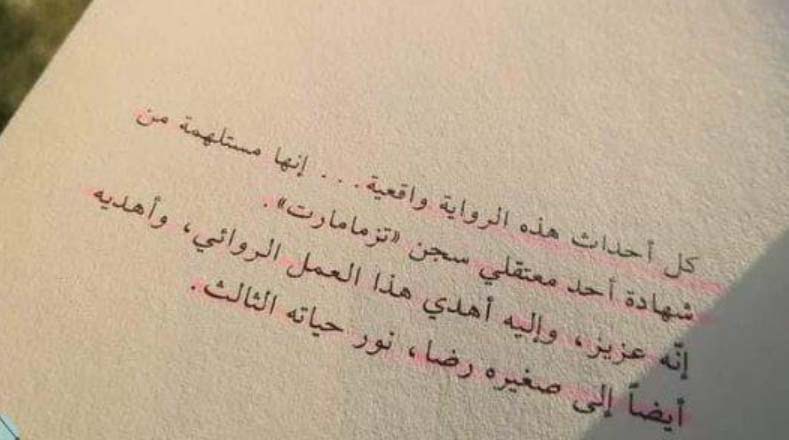 كل أحداث هذه الرواية واقعية... إنها مستلهمة من
شهادة أحد معتقلي سجن «تزمامارت».
إنّه عزيز، وإليه أهدي هذا العمل الروائي، وأهديه
أيضاً إلى صغيره رضا، نور حياته الثالث.